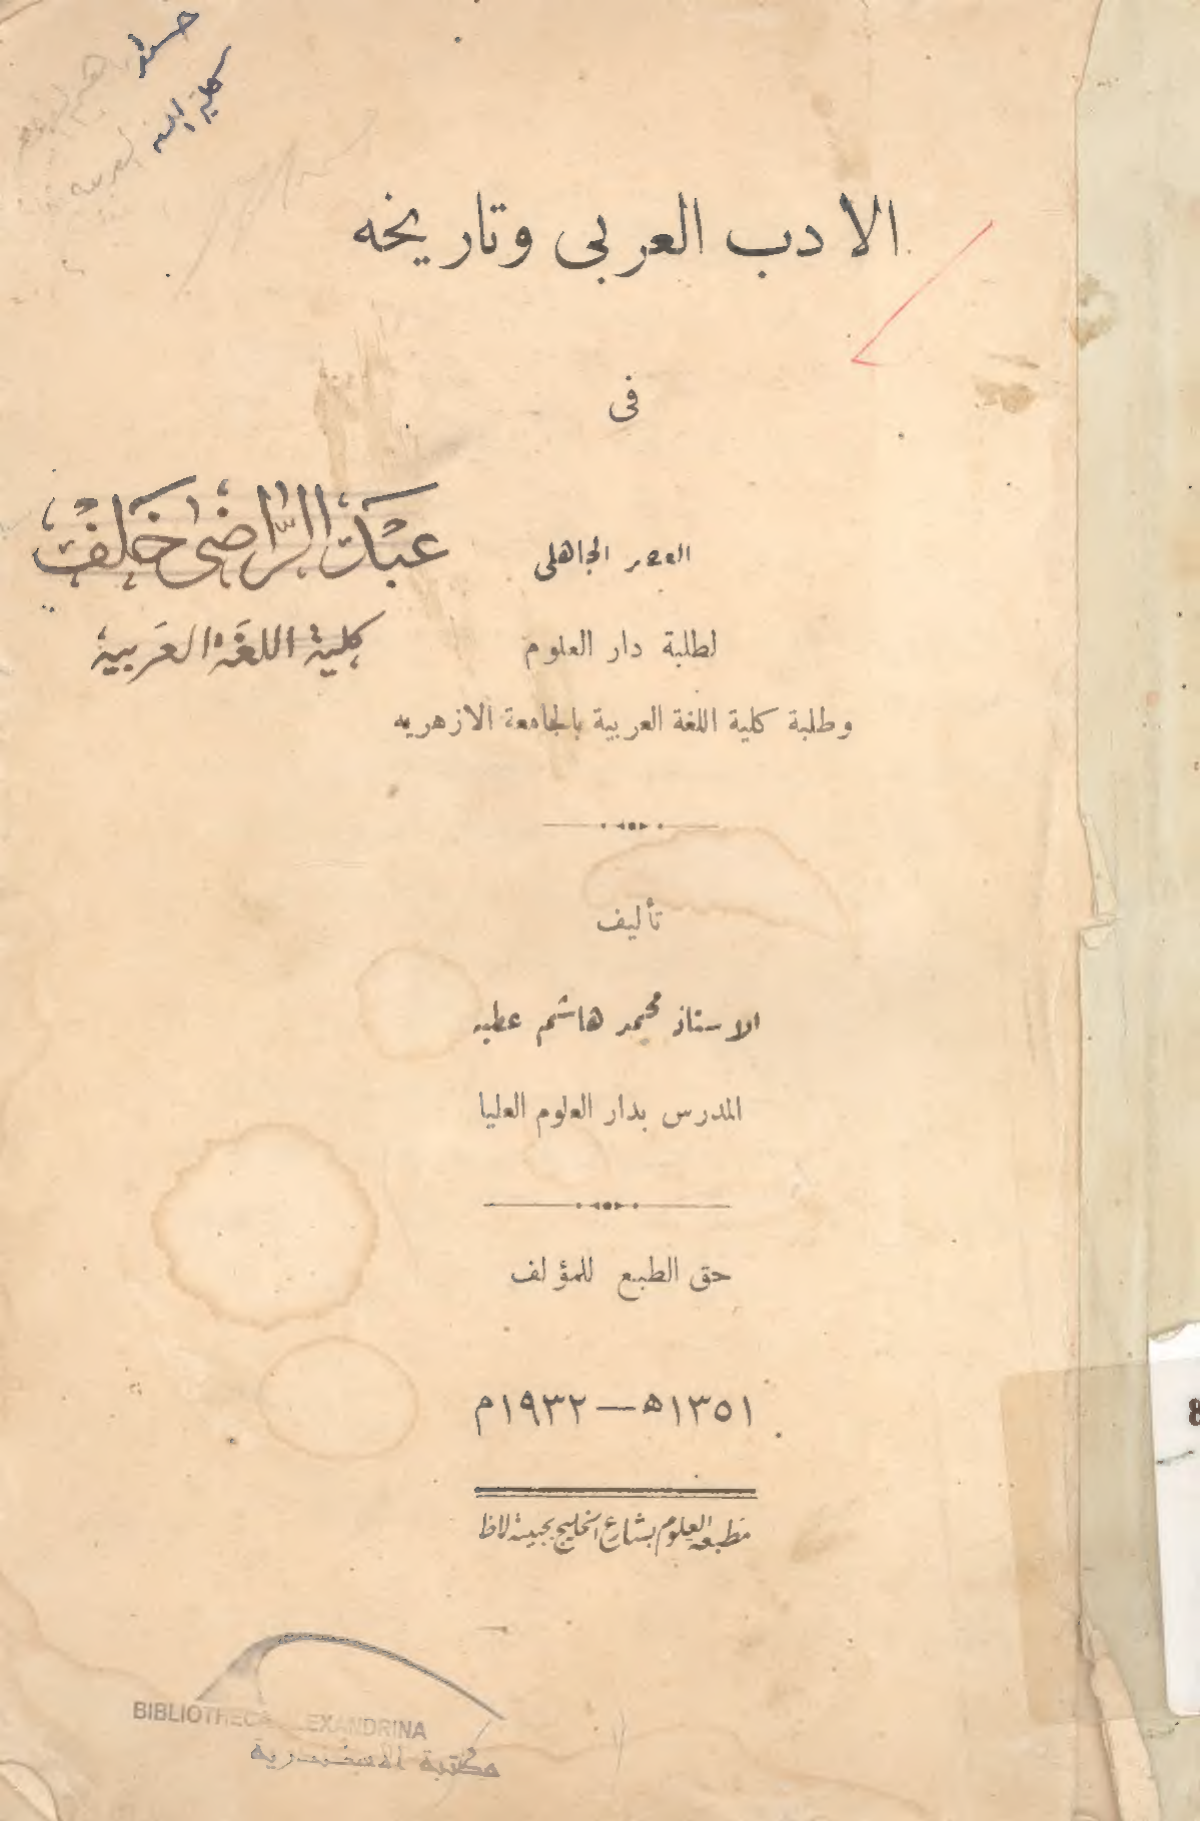 حسن
كلية اللغة العربية
الادب العربى وتاريخه
فى
العصر الجاهلى
عبد الراضى خلف
كلية اللغة العربية
لطلبة دار العلوم
وطلبة كلية اللغة العربية بالجامعة الازهريه
تأليف
الاستاذ محمد هاشم عطيه
المدرس بدار العلوم العليا
حق الطبع للمؤلف
١٣٥١ه—١٩٣٢م
مطبعة العلوم بشارع الخليج بجنينة لاظ
BIBLIOTHECA ALEXANDRINA
مكتبة الاسكندرية
8